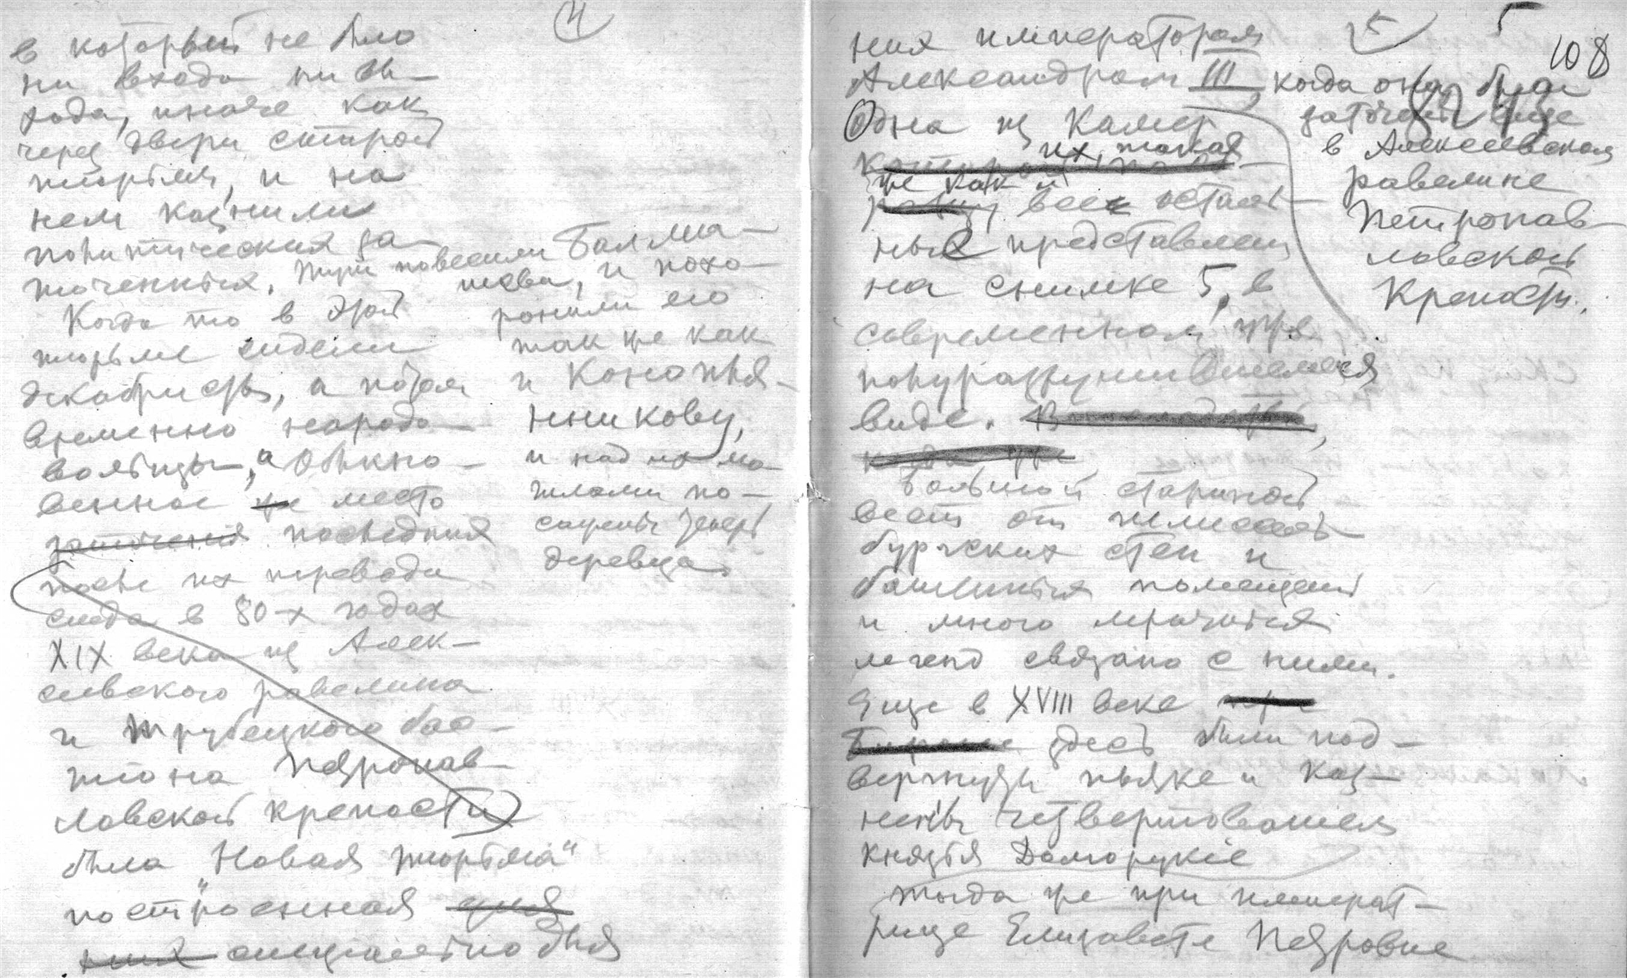 4
в который не было
ни входа ни вы-
хода, иначе как
через двери старой
тюрьмы, и на
нем казнили
политических за-
точенных. Тут повесили Балма-
шева, и похо-
ронили его
так же как
и Конопля-
нникову,
и над их мо-
гилами по-
сажены теперь
деревца.
Когда то в этой
тюрьме сидели
декабристы, а потом
временно народо-
вольцы, а обыкно-
венное же место
заточения последних
после их перевода
сюда в 80-х годах
XIX века из Алек-
сеевского равелина
и Трубецкого бас-
тиона Петропав-
ловской крепости
была „Новая тюрьма“
построенная для
них специально для
5
5
108
82 93
них императором
Александром III, когда они были
заточены еще
в Алексеевском
равелине
Петропав-
ловской
Крепости.
Одна из камер
их, такая
же как и
все осталь-
ные представлена
на снимке 5, в
современном уже
полуразрушившемся
виде.
Большой стариной
веет от шлиссель-
бургских стен и
башенных помещений
и много мрачных
легенд связано с ними.
Еще в XVIII веке
здесь были под-
вергнуты пытке и каз-
нены четвертованием
князья Долгорукие
тогда же при императ-
рице Елизавете Петровне